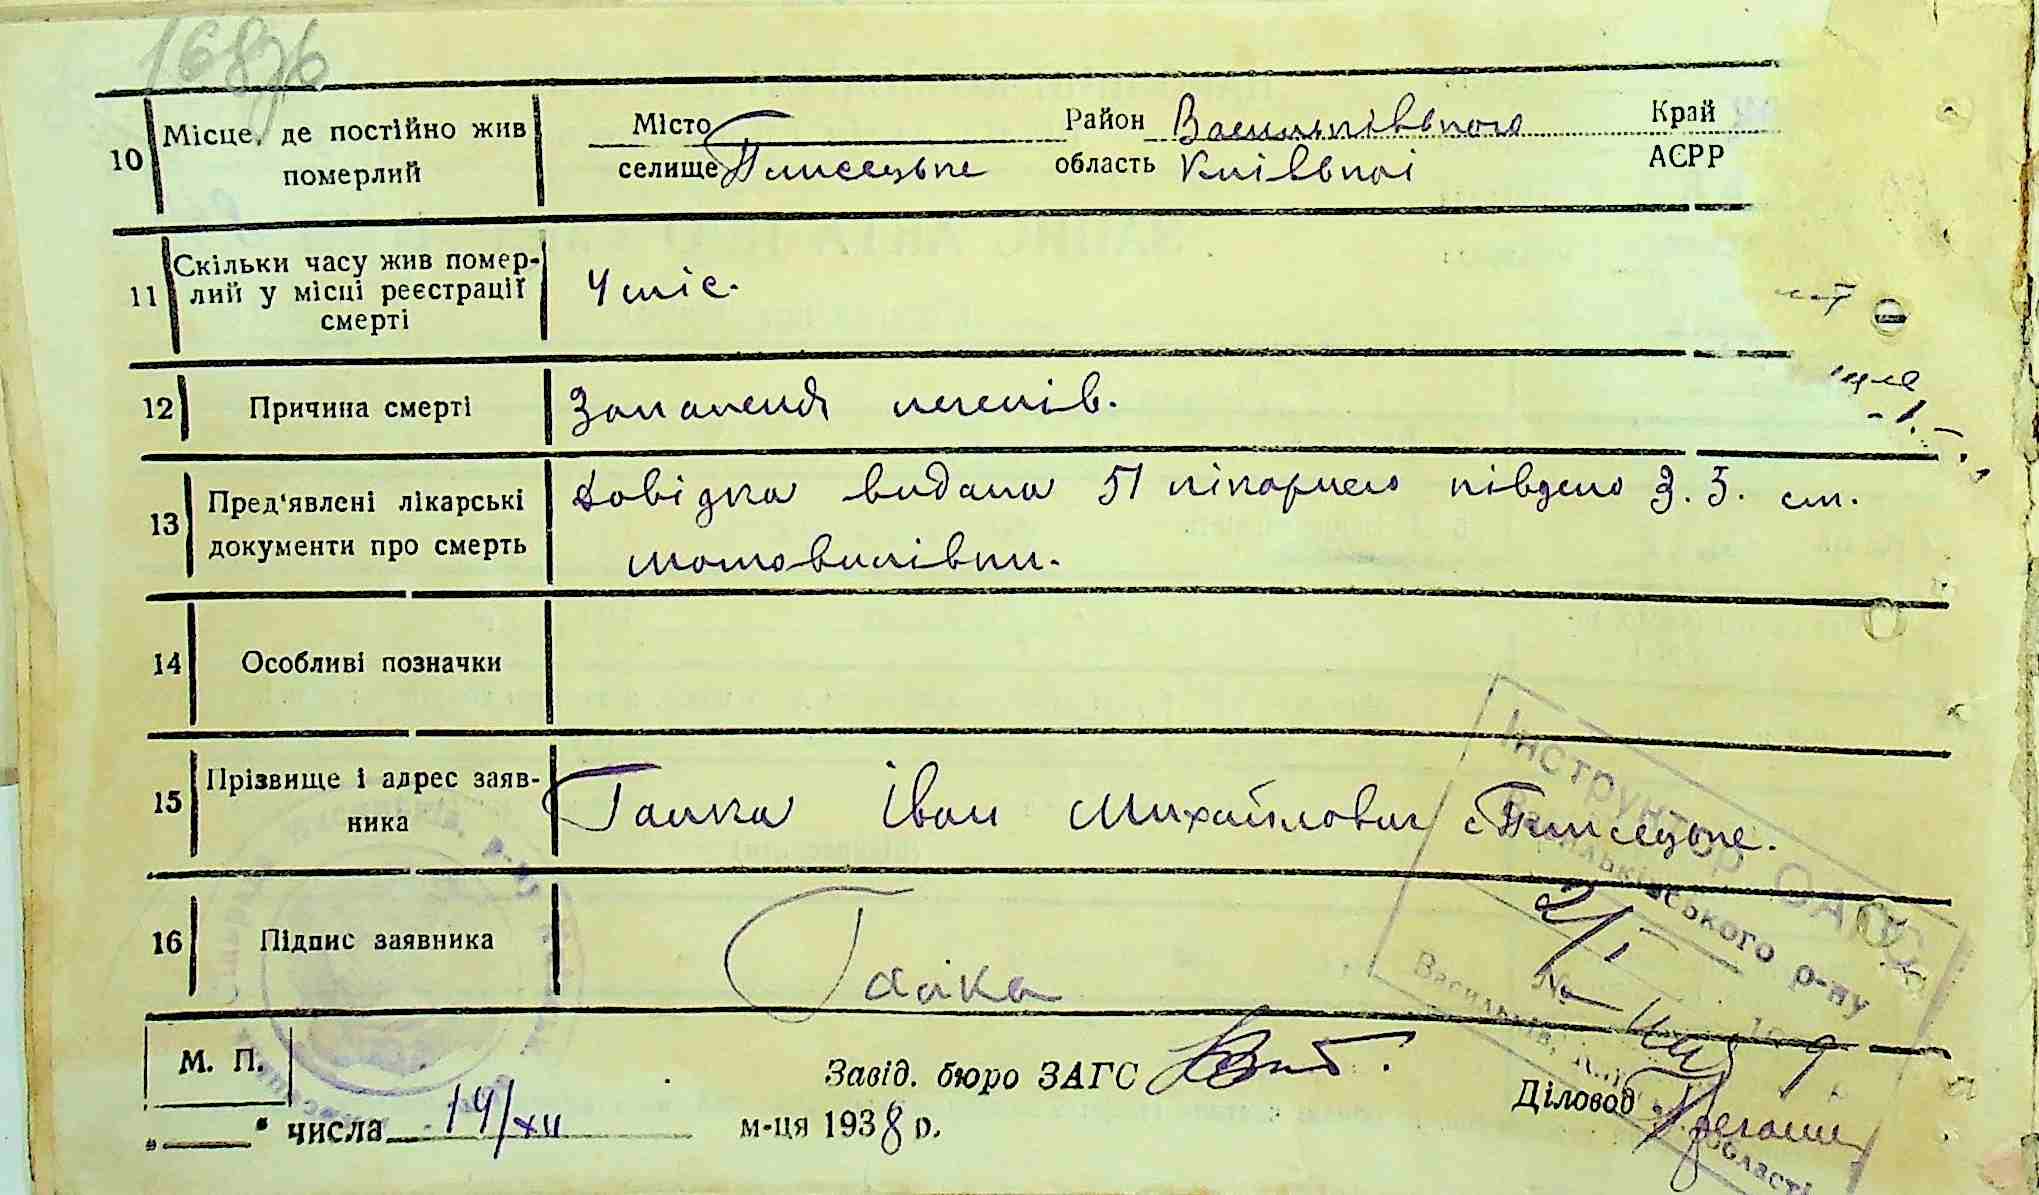 16876
10 Місце, де постійно жив померлий
Місто селище Плисецьке
Район Васильківського
область Київської
Край АЄРР
11 Скільки часу жив помер-
лий у місці реєстрації
смерті
4 міс.
12 Причина смерті
Запалення легенів.
13 Пред'явлені лікарські
документи про смерть
Довідка видана 51 лікарнею південо З. З. ст.
мотовилівки.
14 Особливі позначки
15 Прізвище і адрес заяв-
ника
Галка Іван Михайлович с Плисецьке.
16 Підпис заявника
Галка
М. П.
Завід. бюро ЗАГС
Діловод
„ “ числа 14/XII м-ця 1938 р.
Інструктор ОАГС
Васильківського р-ну
2/I
№
Васильків, області